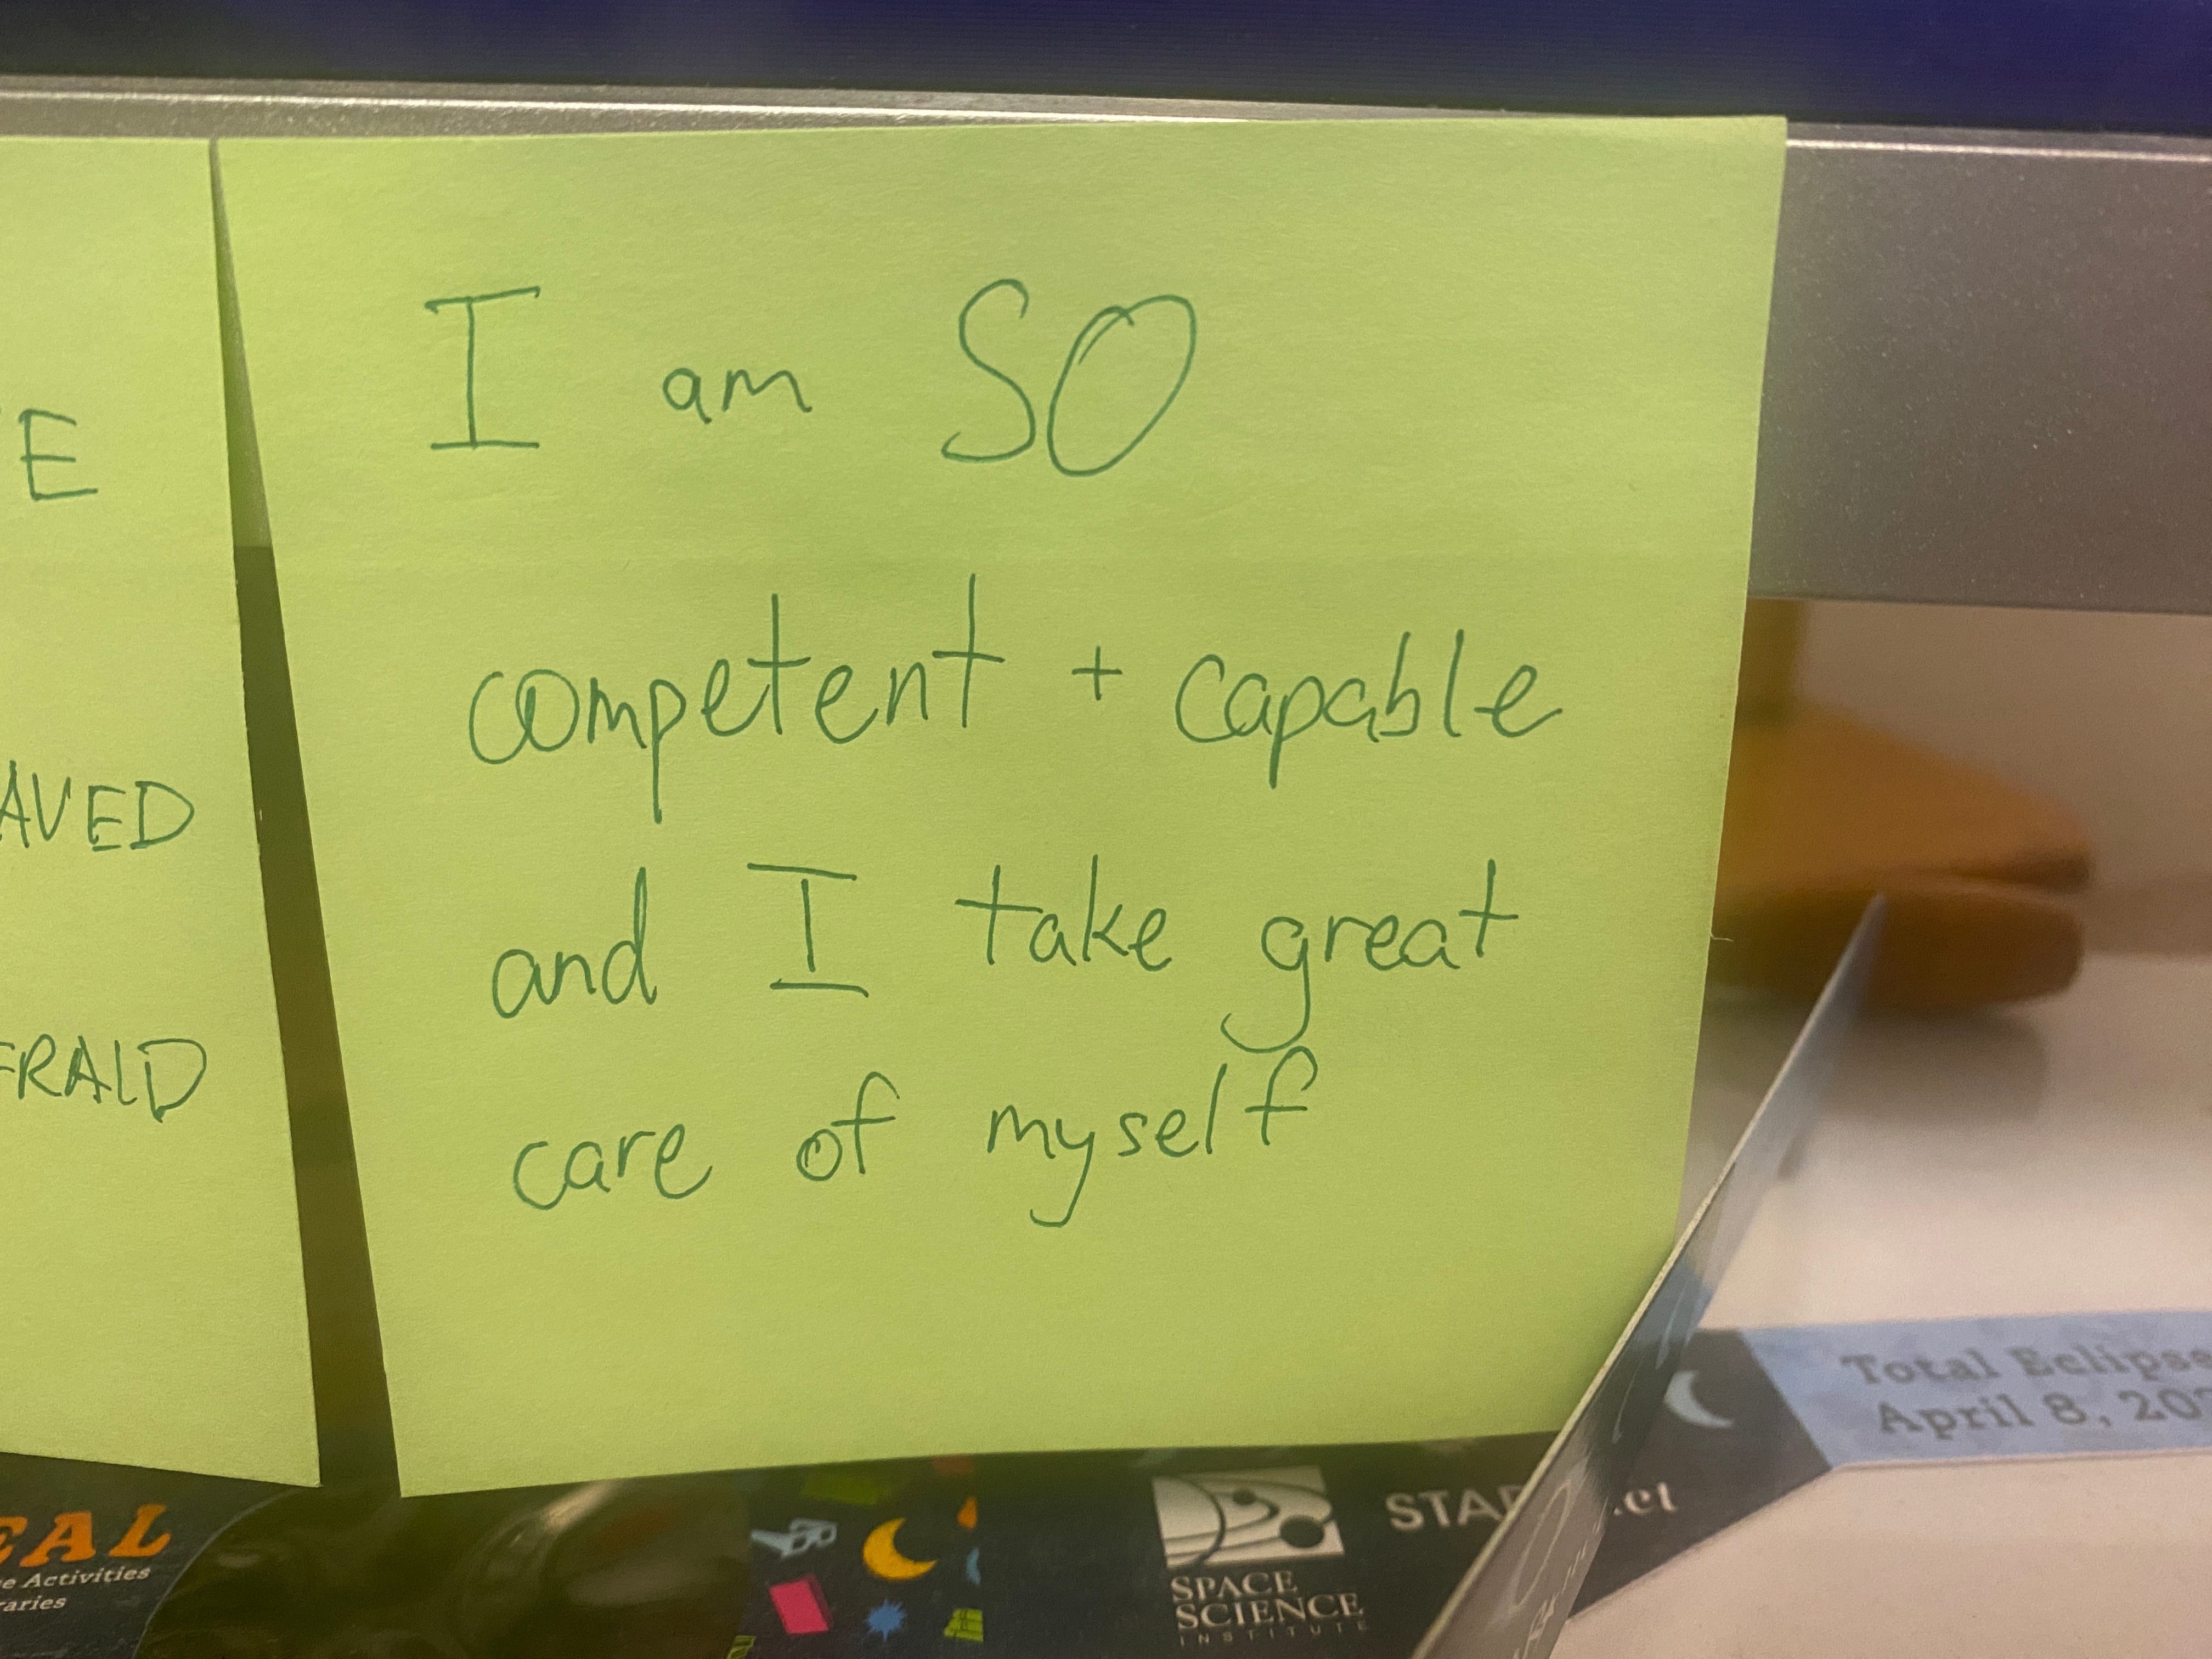 I am SO
competent + capable
and I take great
care of myself
E
AVED
FRAID
EAL
e Activities
raries
SPACE
SCIENCE
INSTITUTE
STAR
.et
Total Eclipse
April 8, 202